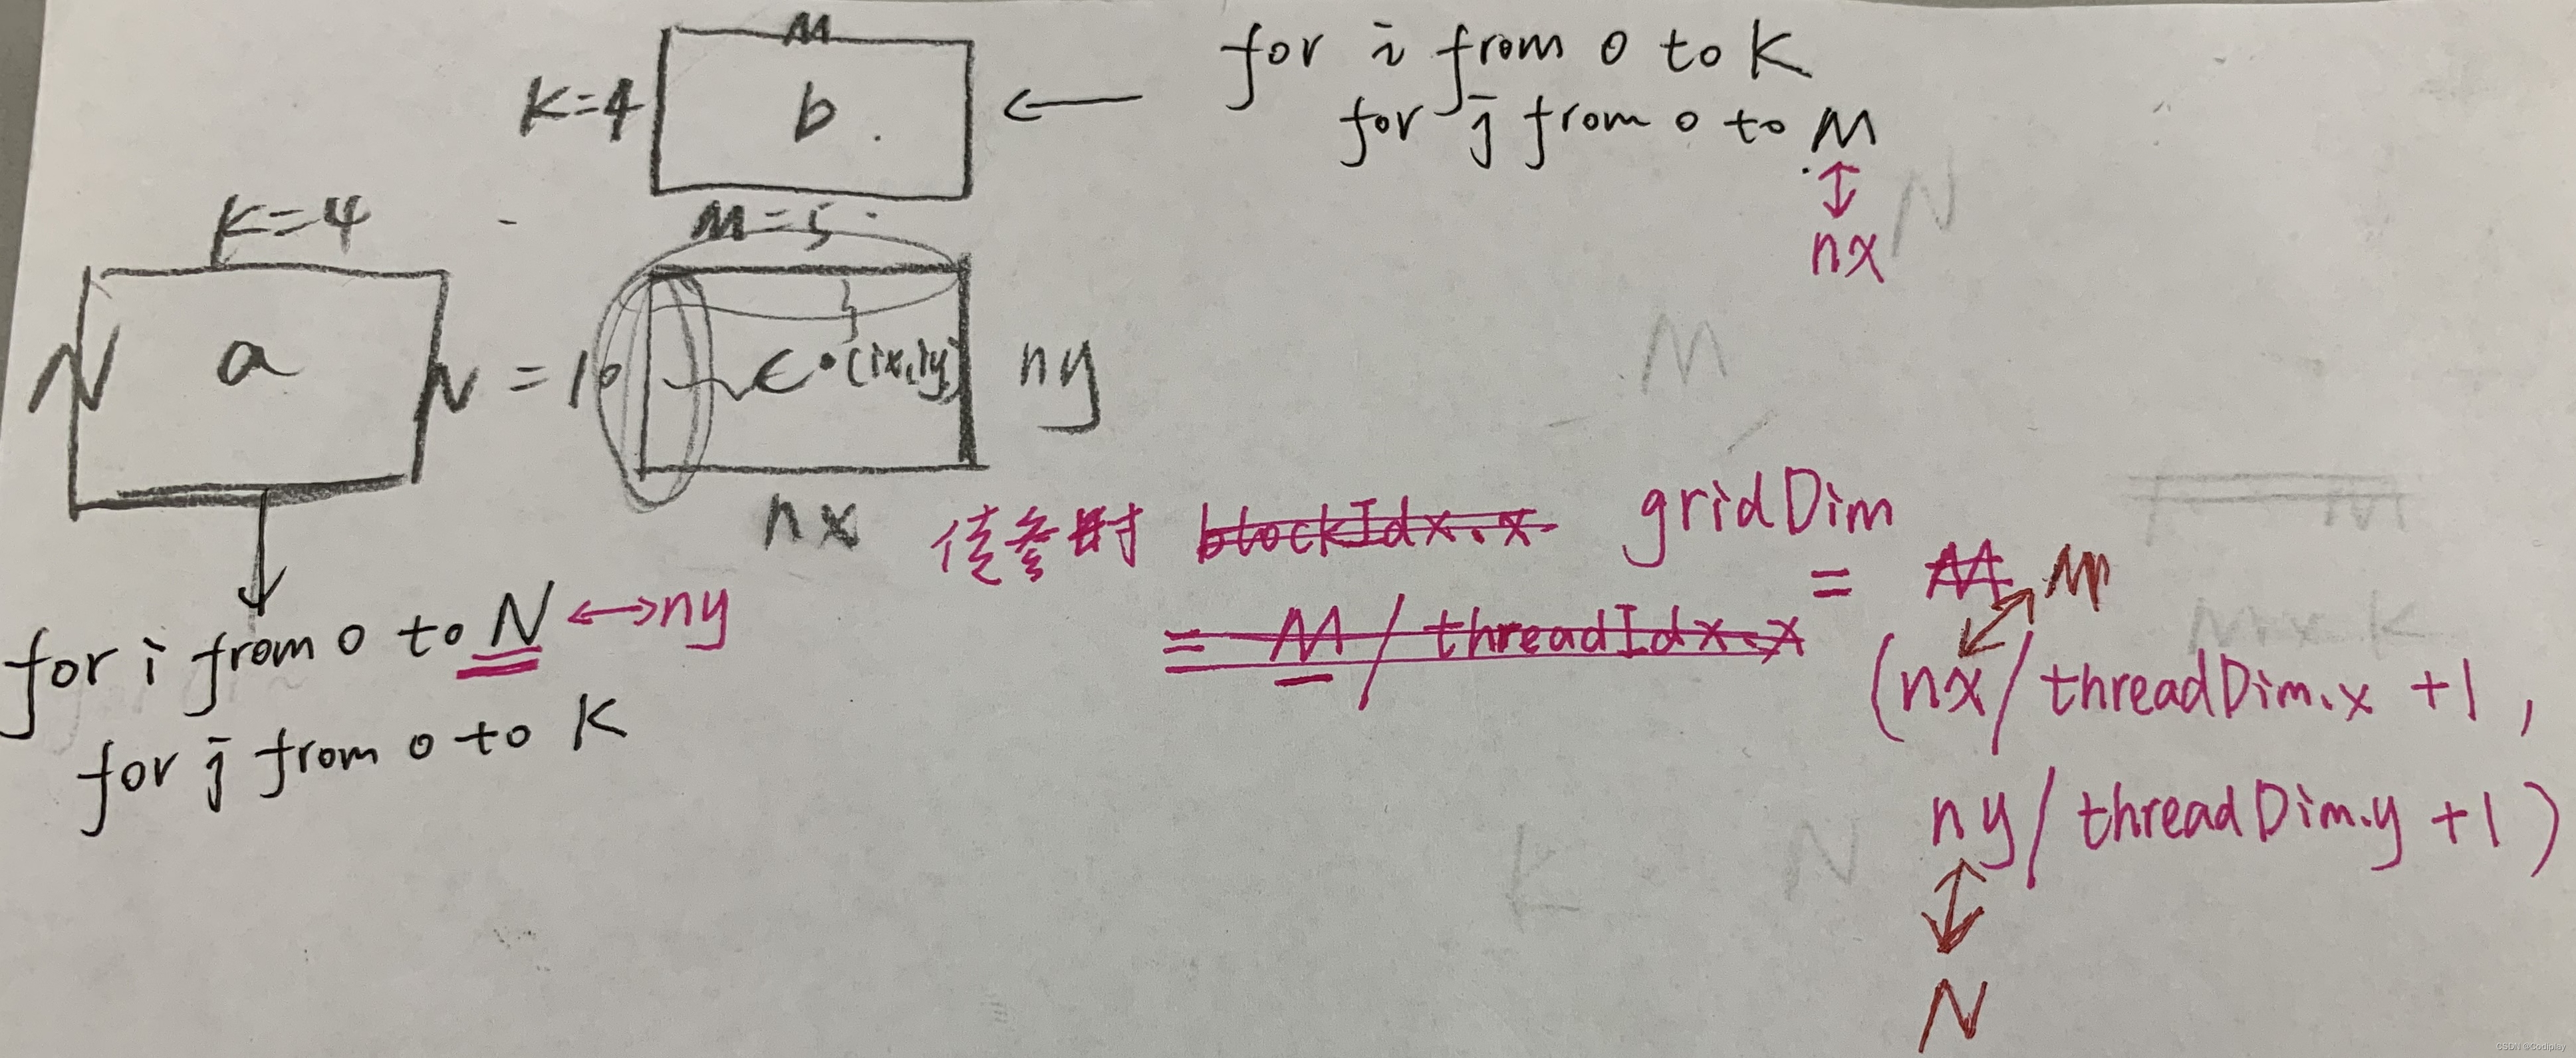 M
K=4
b
for i from 0 to K
for j from 0 to M
nx
K=4
M=5
N
a
N = 10
C (ix,iy)
ny
nx
传参时 blockIdx.x gridDim
= M / threadIdx.x
= M M
(nx/threadDim.x +1,
ny/threadDim.y +1)
N
for i from 0 to N ny
for j from 0 to K
N
M
M
M x K
K N
CSDN @Codiplay